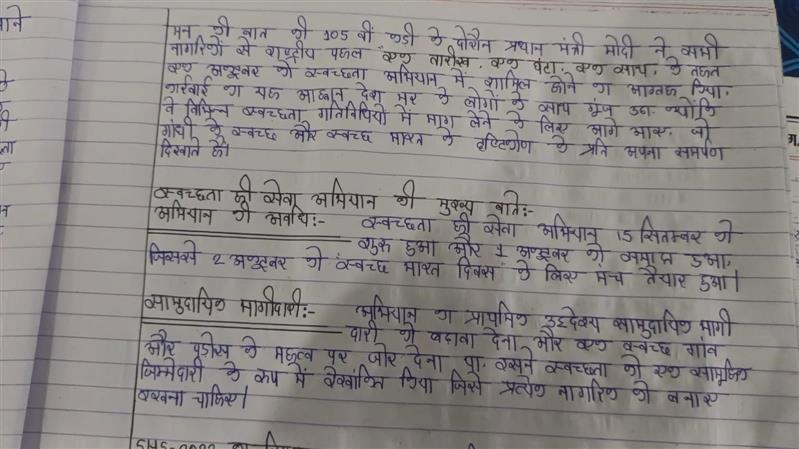 मन की बात की 105 वी कडी के दौरान प्रधान मंत्री मोदी ने सभी
नागरिकों से राष्ट्रीय पहल एक तारीख, एक घंटा, एक साथ, के तहत
एक अक्टूबर को स्वच्छता अभियान में शामिल होने का आग्रह किया,
कार्रवाई का यह आह्वान देश भर के लोगों के साथ गूंज उठा क्योंकि
वे विभिन्न स्वच्छता गतिविधियों में भाग लेने के लिए आगे आए, जो
गांधी के स्वच्छ और स्वच्छ भारत के दृष्टिकोण के प्रति अपना समर्पण
दिखाते है।
स्वच्छता ही सेवा अभियान की मुख्य बाते:-
अभियान की अवधि:- स्वच्छता ही सेवा अभियान 15 सितम्बर को
शुरू हुआ और 1 अक्टूबर को समाप्त हुआ,
जिससे 2 अक्टूबर को स्वच्छ भारत दिवस के लिए मंच तैयार हुआ।
सामुदायिक भागीदारी:- अभियान का प्राथमिक उद्देश्य सामुदायिक भागी
दारी को बढावा देना और एक स्वच्छ गांव
और पडोस के महत्व पर जोर देना था, इसने स्वच्छता को एक सामूहिक
जिम्मेदारी के रूप में रेखांकित किया जिसे प्रत्येक नागरिक को बनाए
रखना चाहिए।